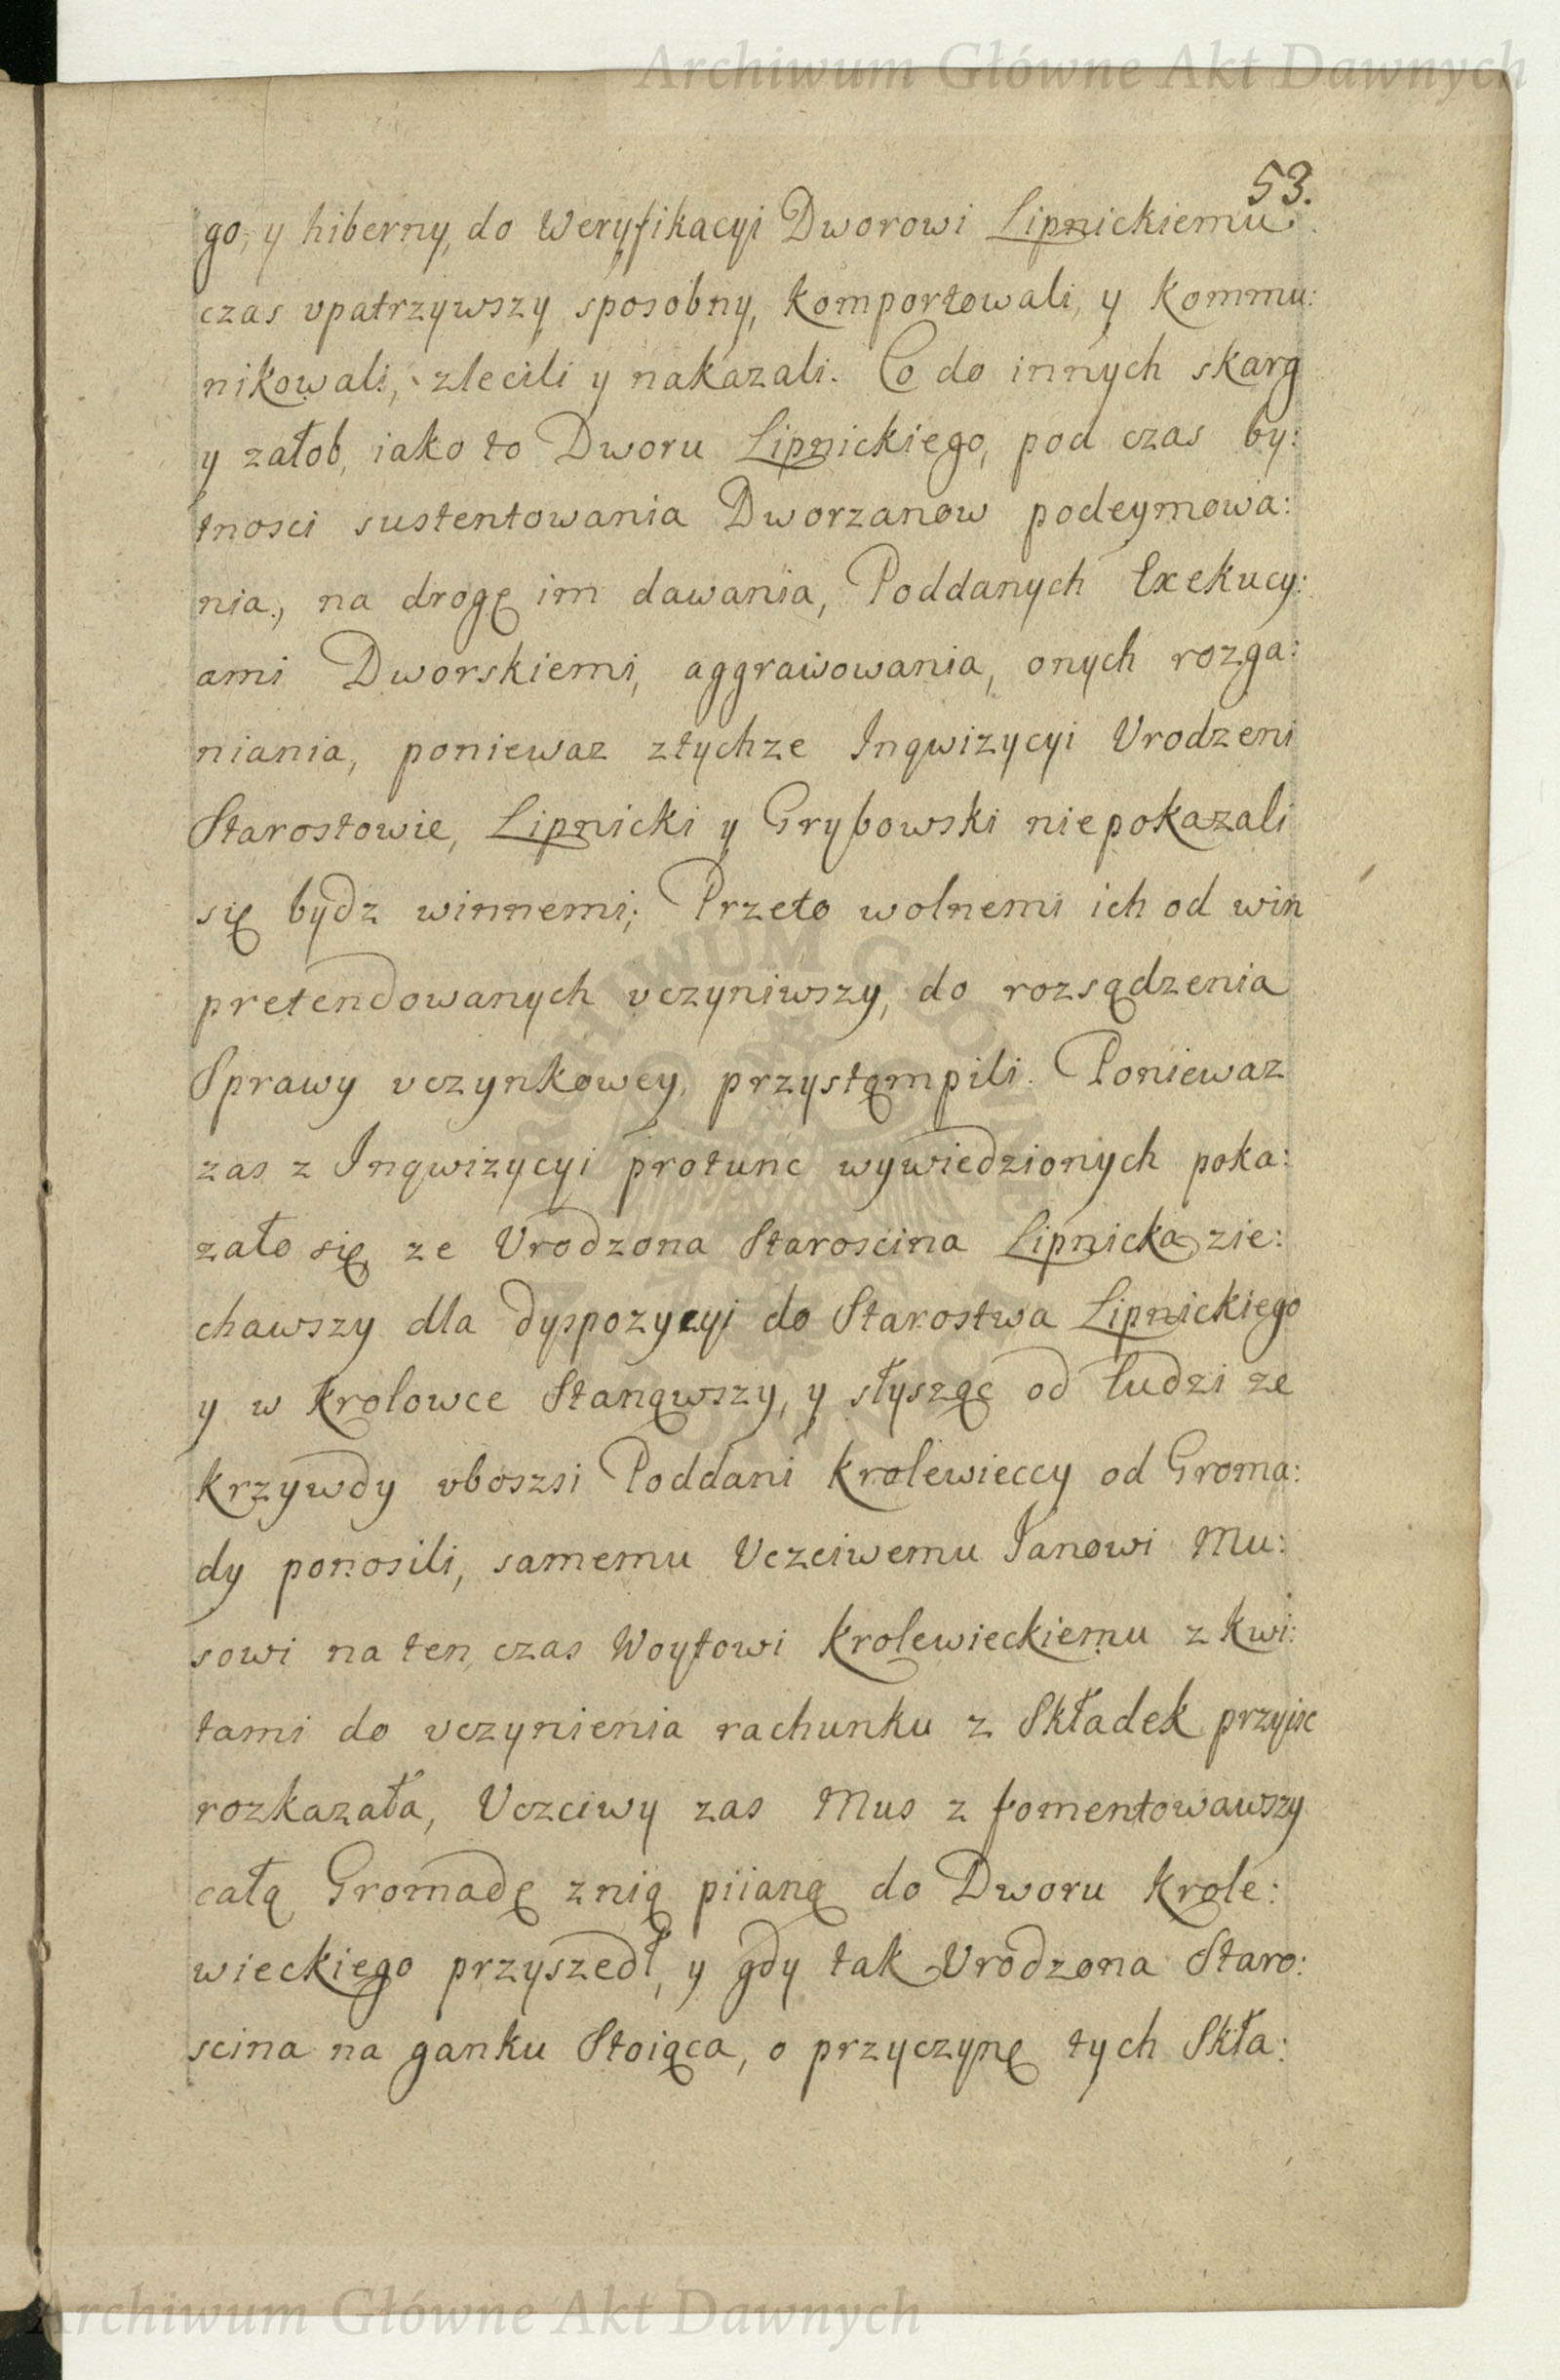 Archiwum Główne Akt Dawnych
53.
go, y hiberny, do Weryfikacyi Dworowi Lipnickiemu
czas vpatrzywszy sposobny, komportowali, y kommu:
nikowali, zlecili y nakazali. Co do innych skarg
y załob, iako to Dworu Lipnickiego, pod czas by:
tnosci sustentowania Dworzanow podeymowa:
nia, na drogę im dawania, Poddanych Exekucy:
ami Dworskiemi, aggrawowania, onych rozga:
niania, poniewaz ztychze Inqwizycyi Vrodzeni
Starostowie, Lipnicki y Grybowski niepokazali
się bydz winnemi; Przeto wolnemi ich od win
pretendowanych vczyniwszy, do rozsądzenia
Sprawy vczynkowey, przystąmpili. Poniewaz
zas z Inqwizycyi protunc wywiedzionych poka:
zało się ze Vrodzona Staroscina Lipnicka zie:
chawszy dla dyspozycyi do Starostwa Lipnickiego
y w Krolowce Stanąwszy, y słysząc od ludzi ze
krzywdy vboszsi Poddani Krolewieccy od Groma:
dy ponosili, samemu Vczciwemu Janowi Mu:
sowi na ten czas Woytowi Krolewieckiemu z kwi:
tami do vczynienia rachunku z Składek przyisc
rozkazała, Vczciwy zas Mus z fomentowawszy
całą Gromadę znią piianą do Dworu Krole:
wieckiego przyszedł, y gdy tak Vrodzona Staro:
scina na ganku Stoiąca, o przyczynę tych Skła:
Archiwum Główne Akt Dawnych